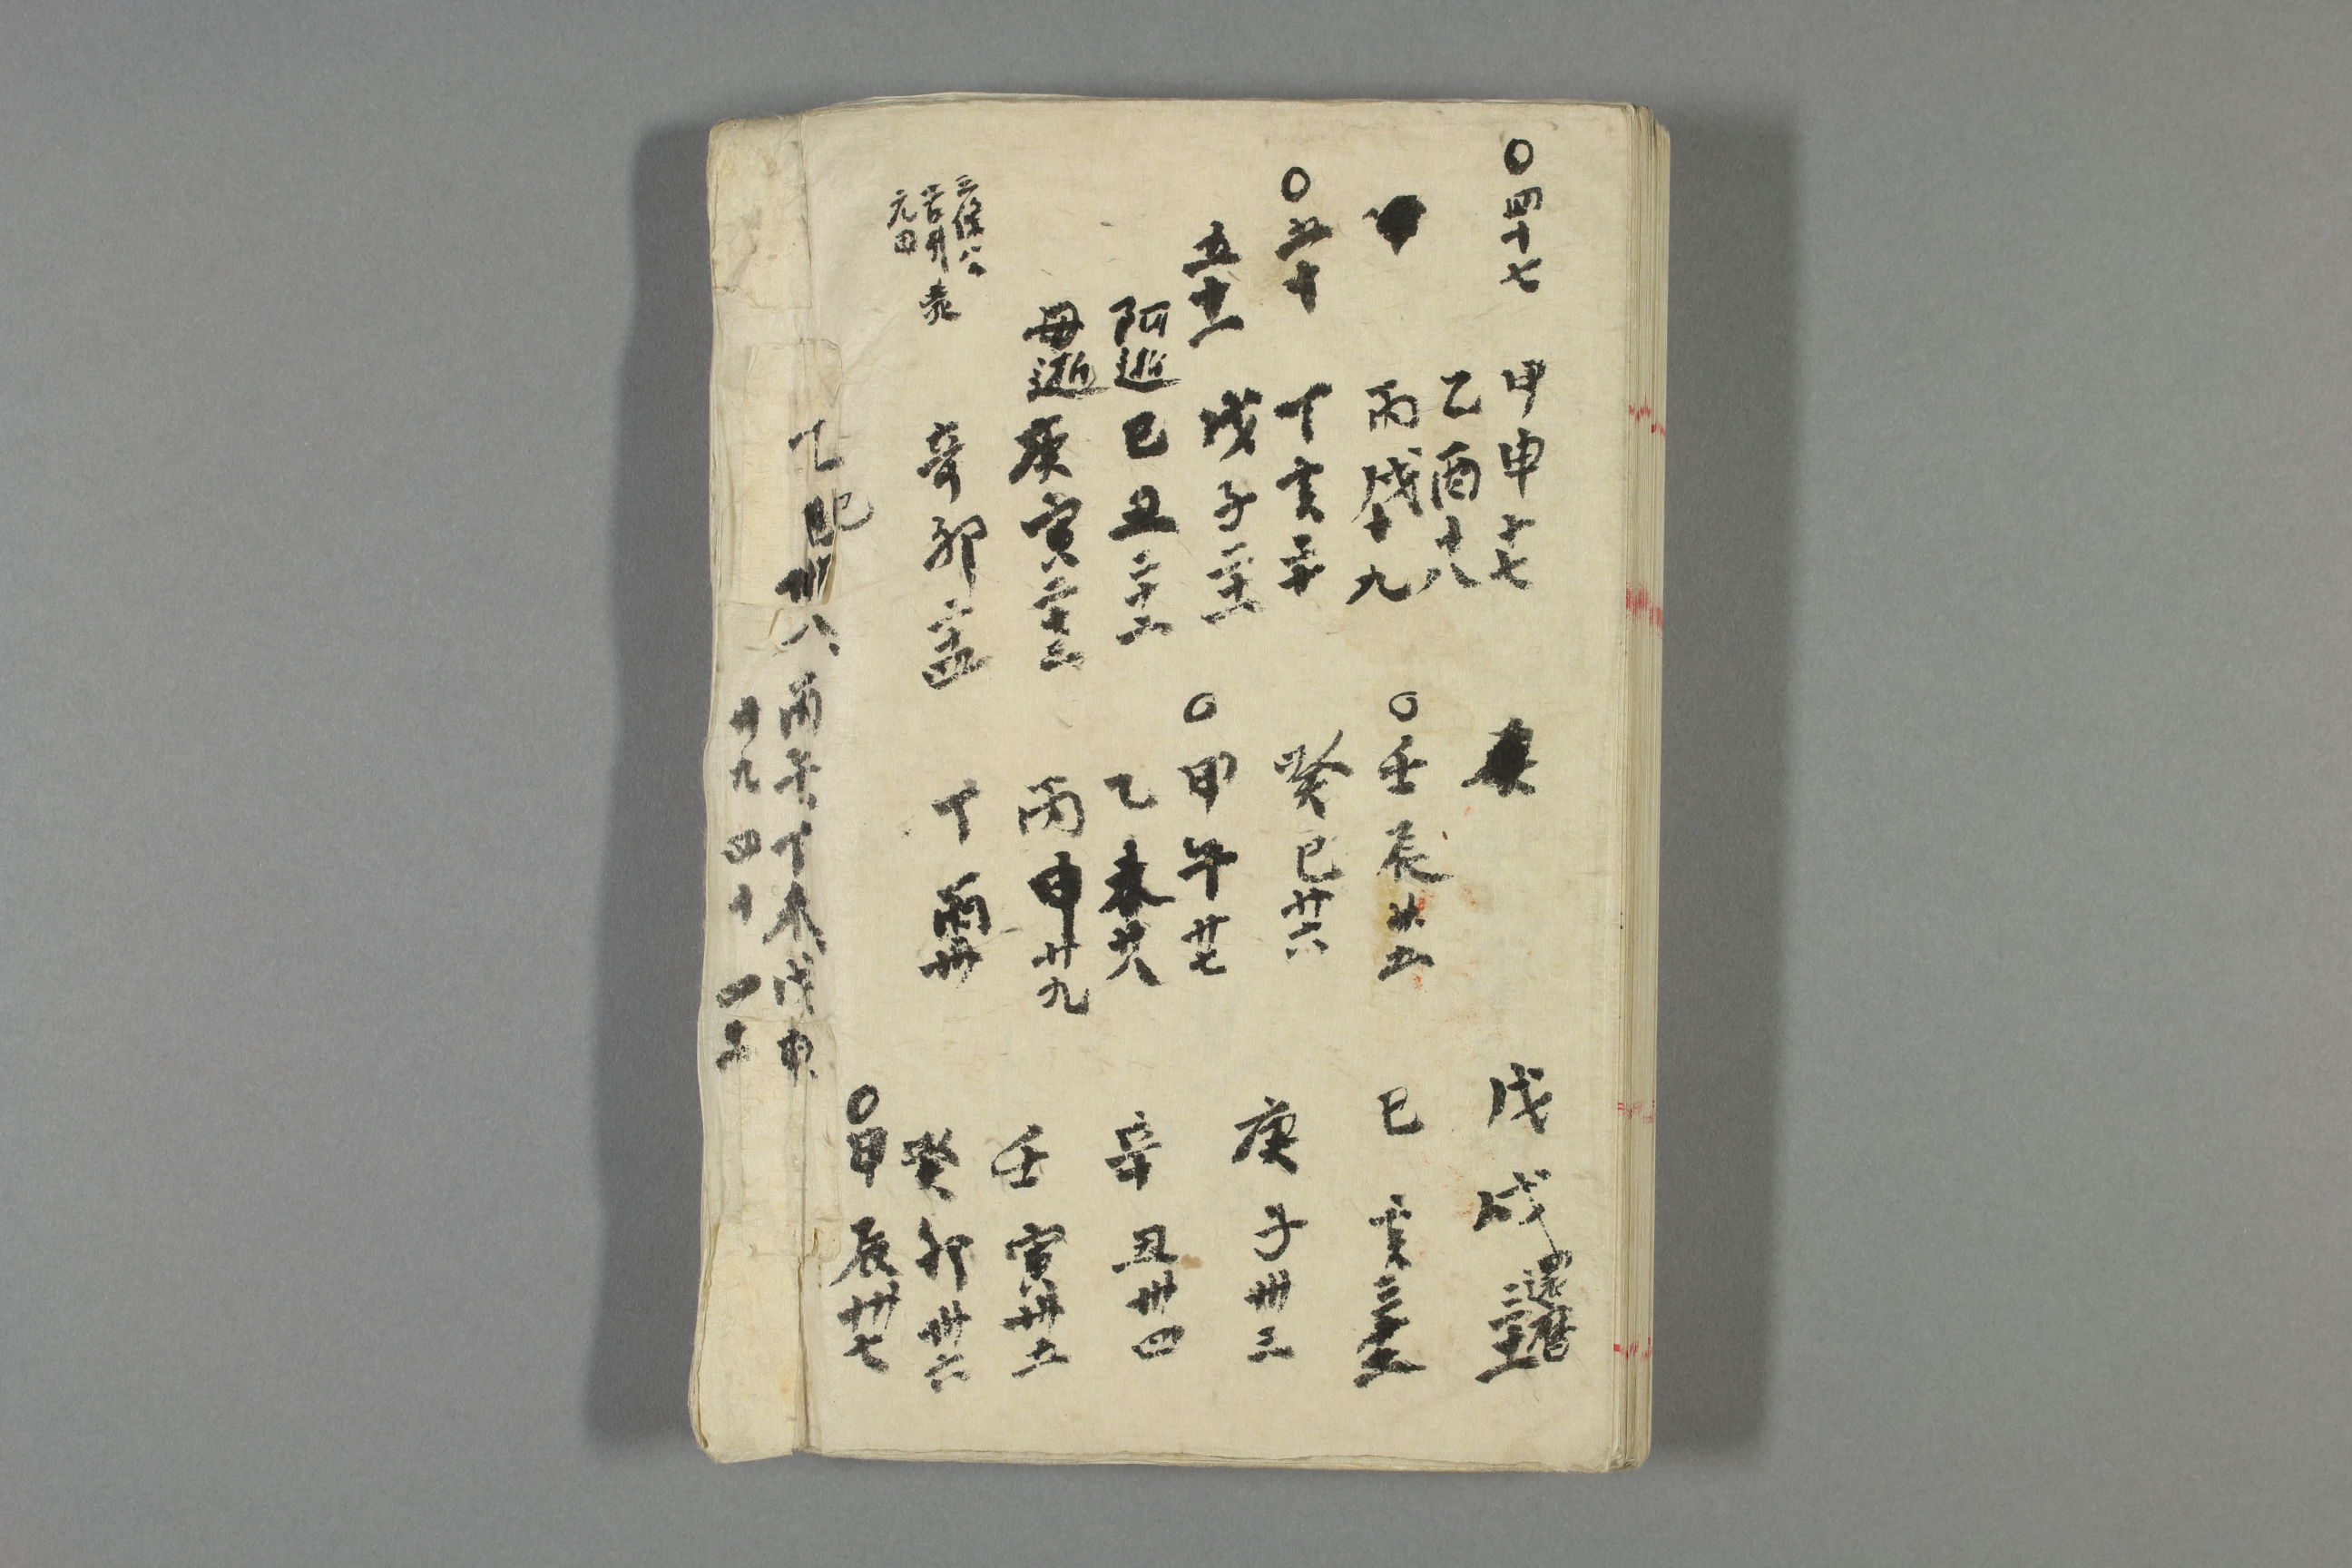 〇四十七
甲申十七
乙酉十八
丙戌十九
〇五十
丁亥二十
五十一
戊子二十一
阿逝
己丑二十二
母逝
庚寅二十三
辛卯二十四
〇壬辰廿五
癸巳廿六
〇甲午廿七
乙未廿八
丙申廿九
丁酉卅
戊戌還暦三十一
己亥三十二
庚子卅三
辛丑卅四
壬寅卅五
癸卯卅六
〇甲辰卅七
乙巳卅八
丙午丁未戊申
卅九 四十 四一